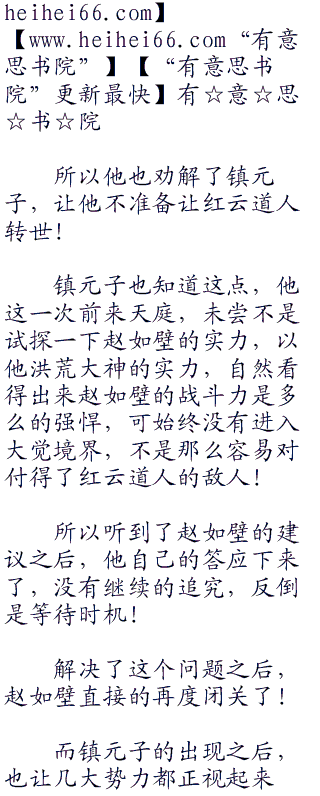 heihei66.com】
【www.heihei66.com“有意
思书院”】【“有意思书
院”更新最快】有☆意☆思
☆书☆院
所以他也劝解了镇元
子，让他不准备让红云道人
转世！
镇元子也知道这点，他
这一次前来天庭，未尝不是
试探一下赵如壁的实力，以
他洪荒大神的实力，自然看
得出来赵如壁的战斗力是多
么的强悍，可始终没有进入
大觉境界，不是那么容易对
付得了红云道人的敌人！
所以听到了赵如壁的建
议之后，他自己的答应下来
了，没有继续的追究，反倒
是等待时机！
解决了这个问题之后，
赵如壁直接的再度闭关了！
而镇元子的出现之后，
也让几大势力都正视起来